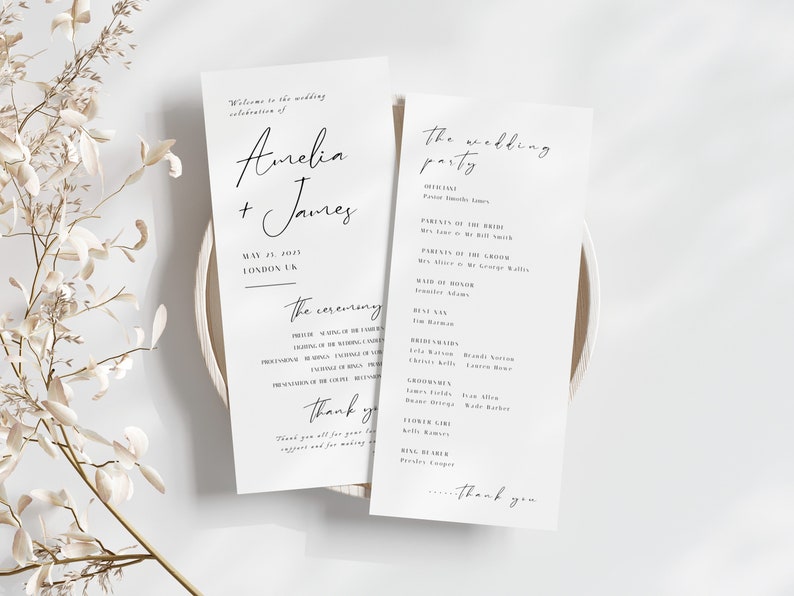 Welcome to the wedding
celebration of
Amelia
+ James
MAY 23, 2023
LONDON UK
the ceremony
PRELUDE SEATING OF THE FAMILIES
LIGHTING OF THE WEDDING CANDLES
PROCESSIONAL READINGS EXCHANGE OF VOW
EXCHANGE OF RINGS PRAY
PRESENTATION OF THE COUPLE RECESSION
thank yo
Thank you all for your lo
support and for making ou
the wedding
party
OFFICIANT
Pastor Timothy James
PARENTS OF THE BRIDE
Mrs Jane & Mr Bill Smith
PARENTS OF THE GROOM
Mrs Alice & Mr George Wallis
MAID OF HONOR
Jennifer Adams
BEST NAN
Tim Harman
BRIDESMAIDS
Lela Watson Brandi Norton
Christy Kells Lauren Howe
GROOMSMEN
James Fields Ivan Allen
Duane Ortega Wade Barber
FLOWER GIRL
Kelly Ramsey
RING BEARER
Presley Cooper
......thank you